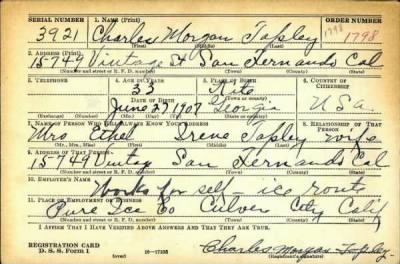 SERIAL NUMBER 1. NAME (Print) ORDER NUMBER
3921 Charles Morgan Tapley 1798 1798
(First) (Middle) (Last)
2. ADDRESS (Print)
15-749 Vintage St San Fernando Cal
(Number and street or R. F. D. number) (Town) (County) (State)
3. TELEPHONE 4. AGE IN YEARS 5. PLACE OF BIRTH 6. COUNTRY OF CITIZENSHIP
33 Kite
DATE OF BIRTH (Town or county)
June 27 1907 Georgia U S a
(Exchange) (Number) (Mo.) (Day) (Yr.) (State or country)
7. NAME OF PERSON WHO WILL ALWAYS KNOW YOUR ADDRESS 8. RELATIONSHIP OF THAT PERSON
Mrs Ethel Irene Tapley wife
(Mr., Mrs., Miss) (First) (Middle) (Last)
9. ADDRESS OF THAT PERSON
15-749 Vintag San Fernando Cal
(Number and street or R. F. D. number) (Town) (County) (State)
10. EMPLOYER'S NAME
Works for self - ice route
11. PLACE OF EMPLOYMENT OR BUSINESS
Pure Ice Co Culver City Calif
(Number and street or R. F. D. number) (Town) (County) (State)
I AFFIRM THAT I HAVE VERIFIED ABOVE ANSWERS AND THAT THEY ARE TRUE.
REGISTRATION CARD
D. S. S. Form 1 (over) 16-17105 Charles Morgan Tapley
(Registrant's signature)